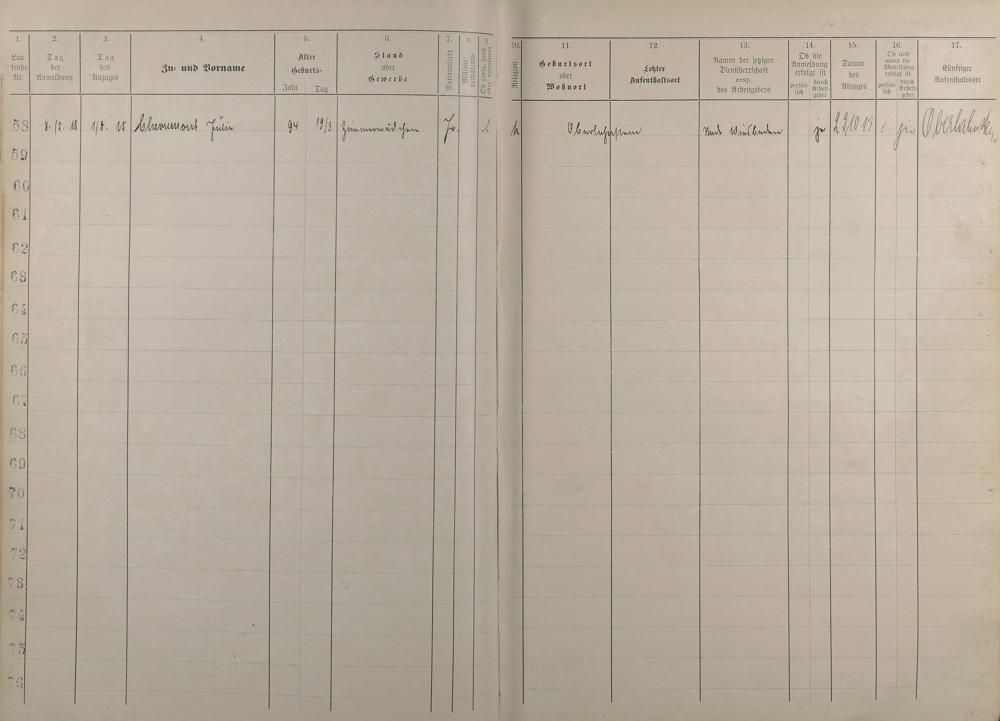 1. 2. 3. 4. 5. 6. 7. 8. 9. 10. 11. 12. 13. 14. 15. 16. 17.
Lau-
fende
Nr.
Tag
der
Anmeldung
Tag
des
Anzuges
Zu- und Vorname
Alter
Geburts-
Jahr Tag
Stand
oder
Gewerbe
Nationalität
Religion
Geburtsort
oder
Wohnort
Letzter
Aufenthaltsort
Namen der jetzigen
Dienstherrschaft
resp.
des Arbeitgebers
Ob die
Anmeldung
erfolgt ist
persön-
lich
durch
Arbeit-
geber
Datum
des
Abzuges
Ob und
wann die
Abmeldung
erfolgt ist
persön-
lich
durch
Arbeit-
geber
Künftiger
Aufenthaltsort
58 94 19/3 Zimmermädchen Pr. l k Oberlahnstein Wiesbaden ja 29.10.15 ja
59
60
61
62
63
64
65
66
67
68
69
70
71
72
73
74
75
76